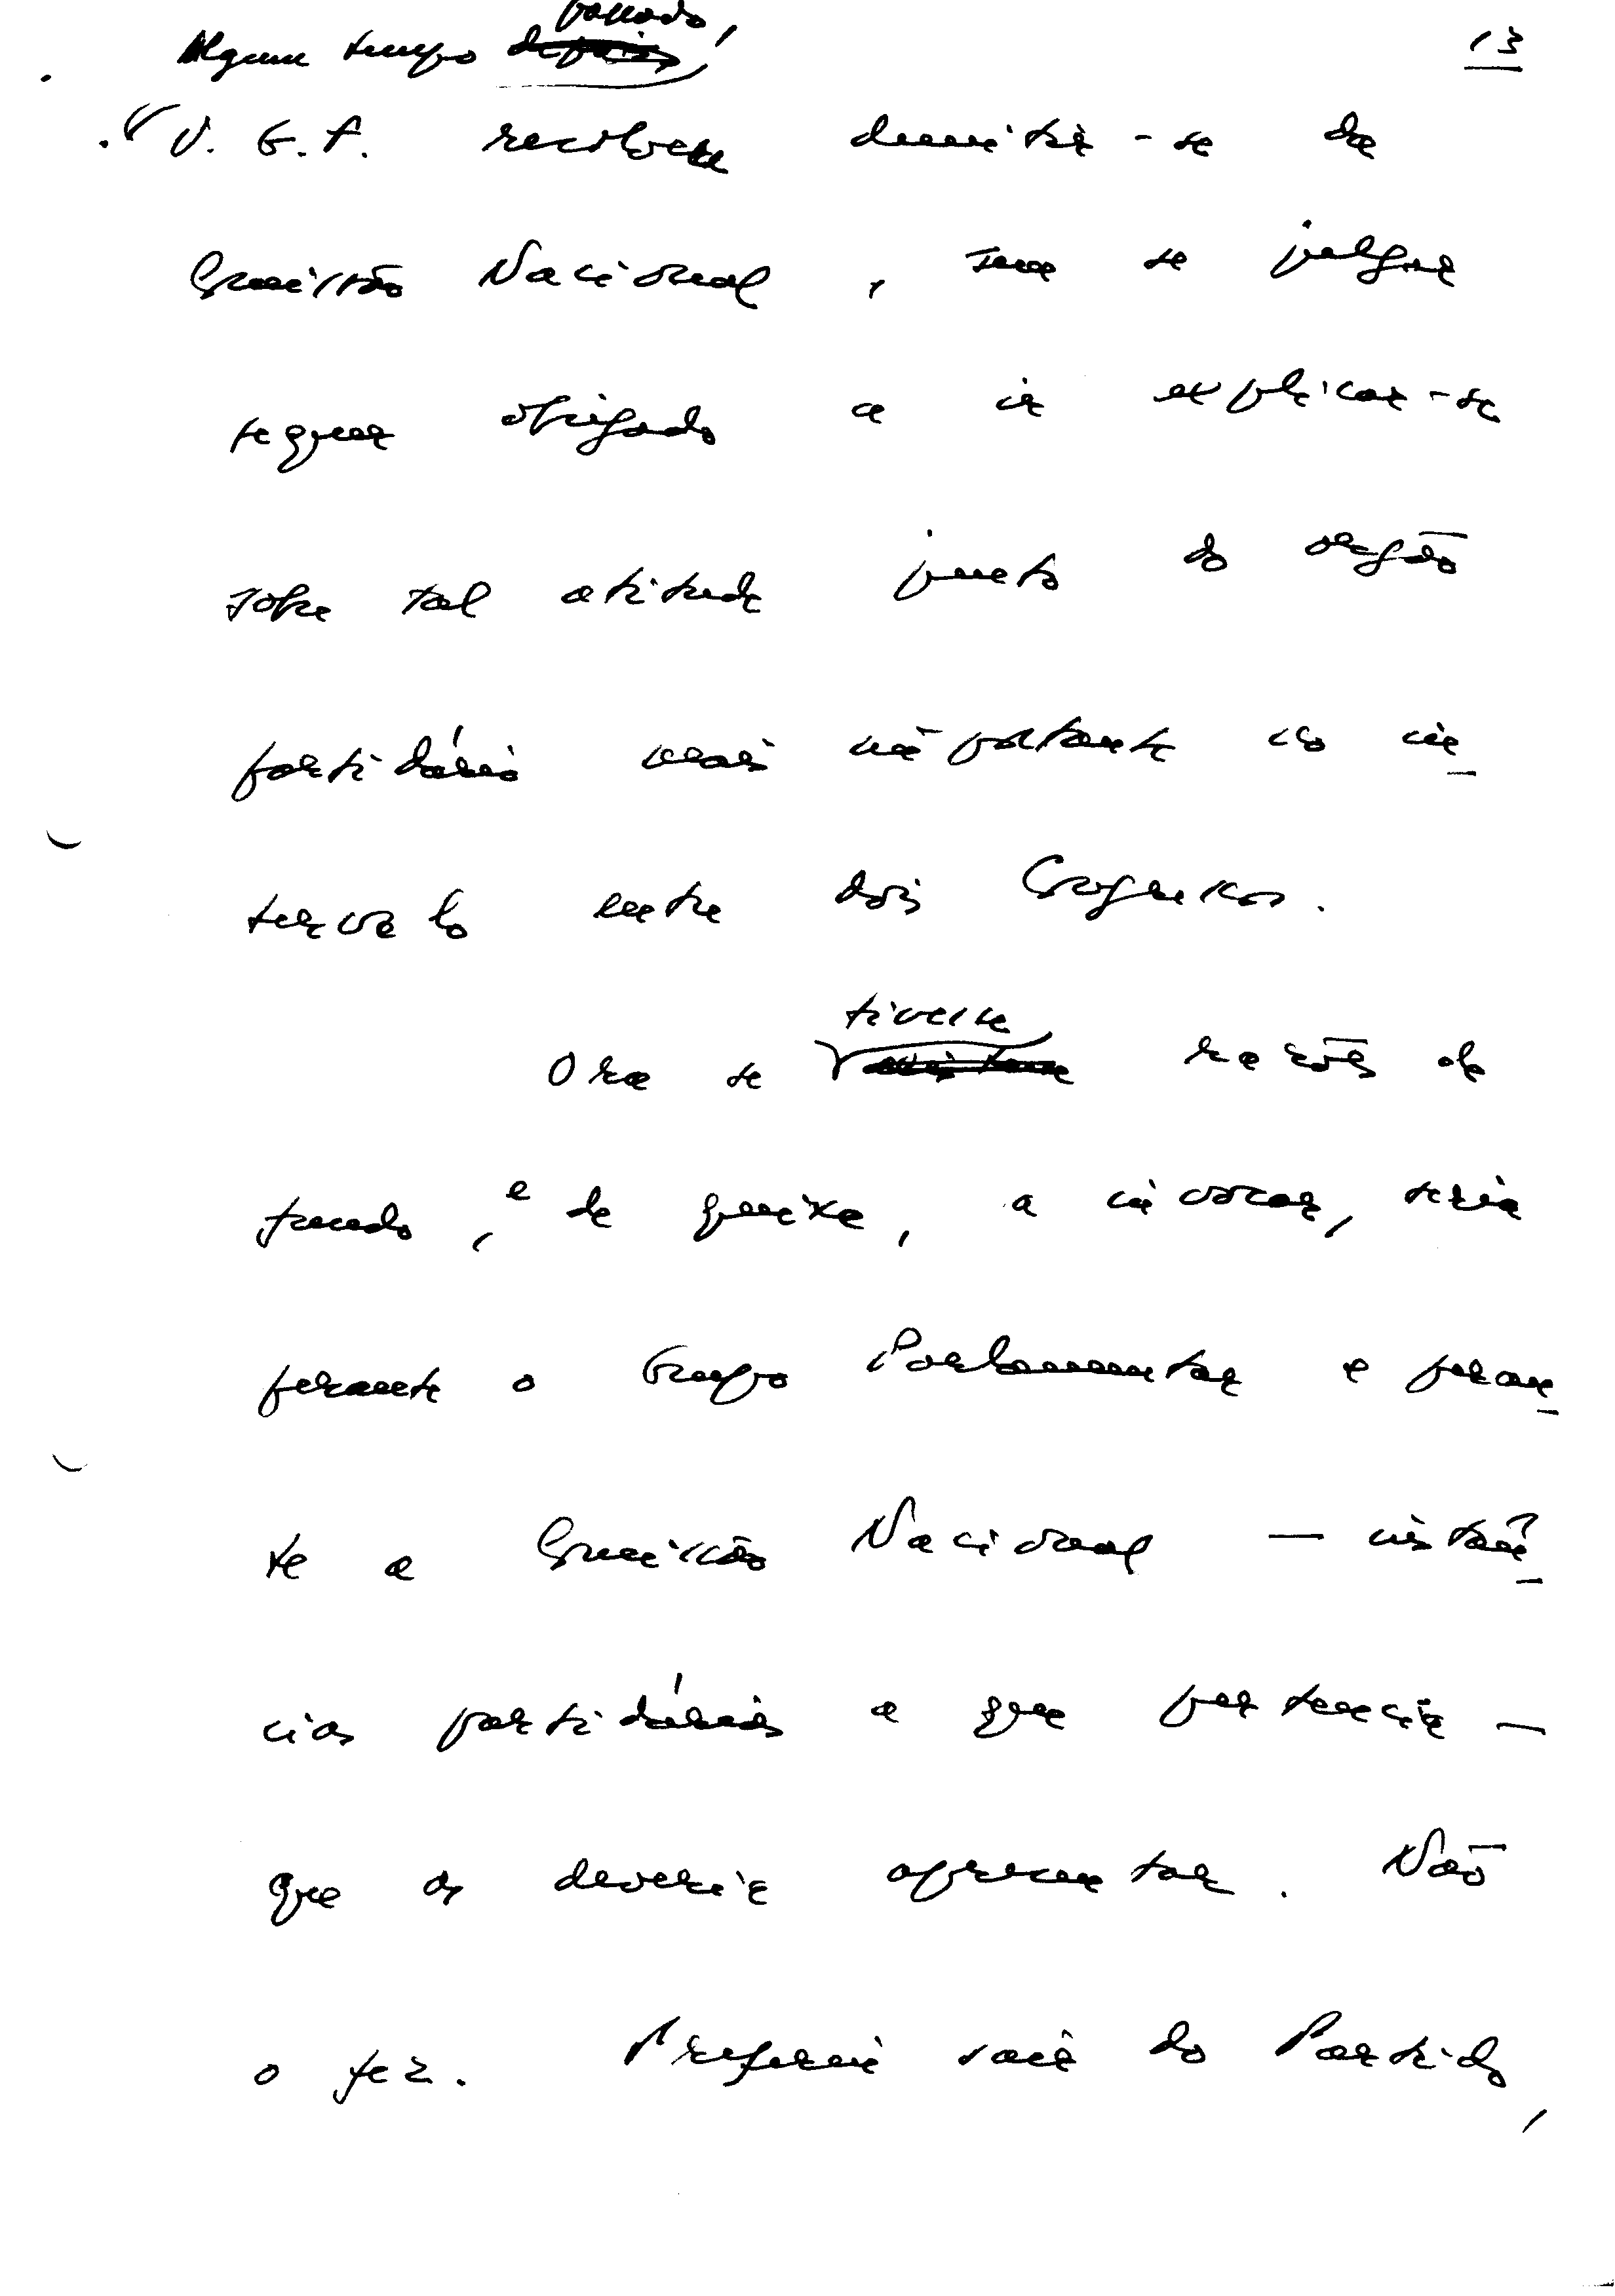 13
Algum tempo depois passado,
V. G. P. resolveu demitir-se da
Comissão Nacional, sem se julgar
sequer obrigado a ir explicar-se
sobre tal atitude junto do orgão
partidário mais importante no in
tervalo entre dois Congressos.
tivesse
Ora se razões de
fundo, e de queixa, a invocar, seria
perante o Grupo Parlamentar e peran
te a Comissão Nacional — instân
cias partidárias a que pertencia —
que as deveria apresentar. Não
o fez. Preferiu sair do Partido,